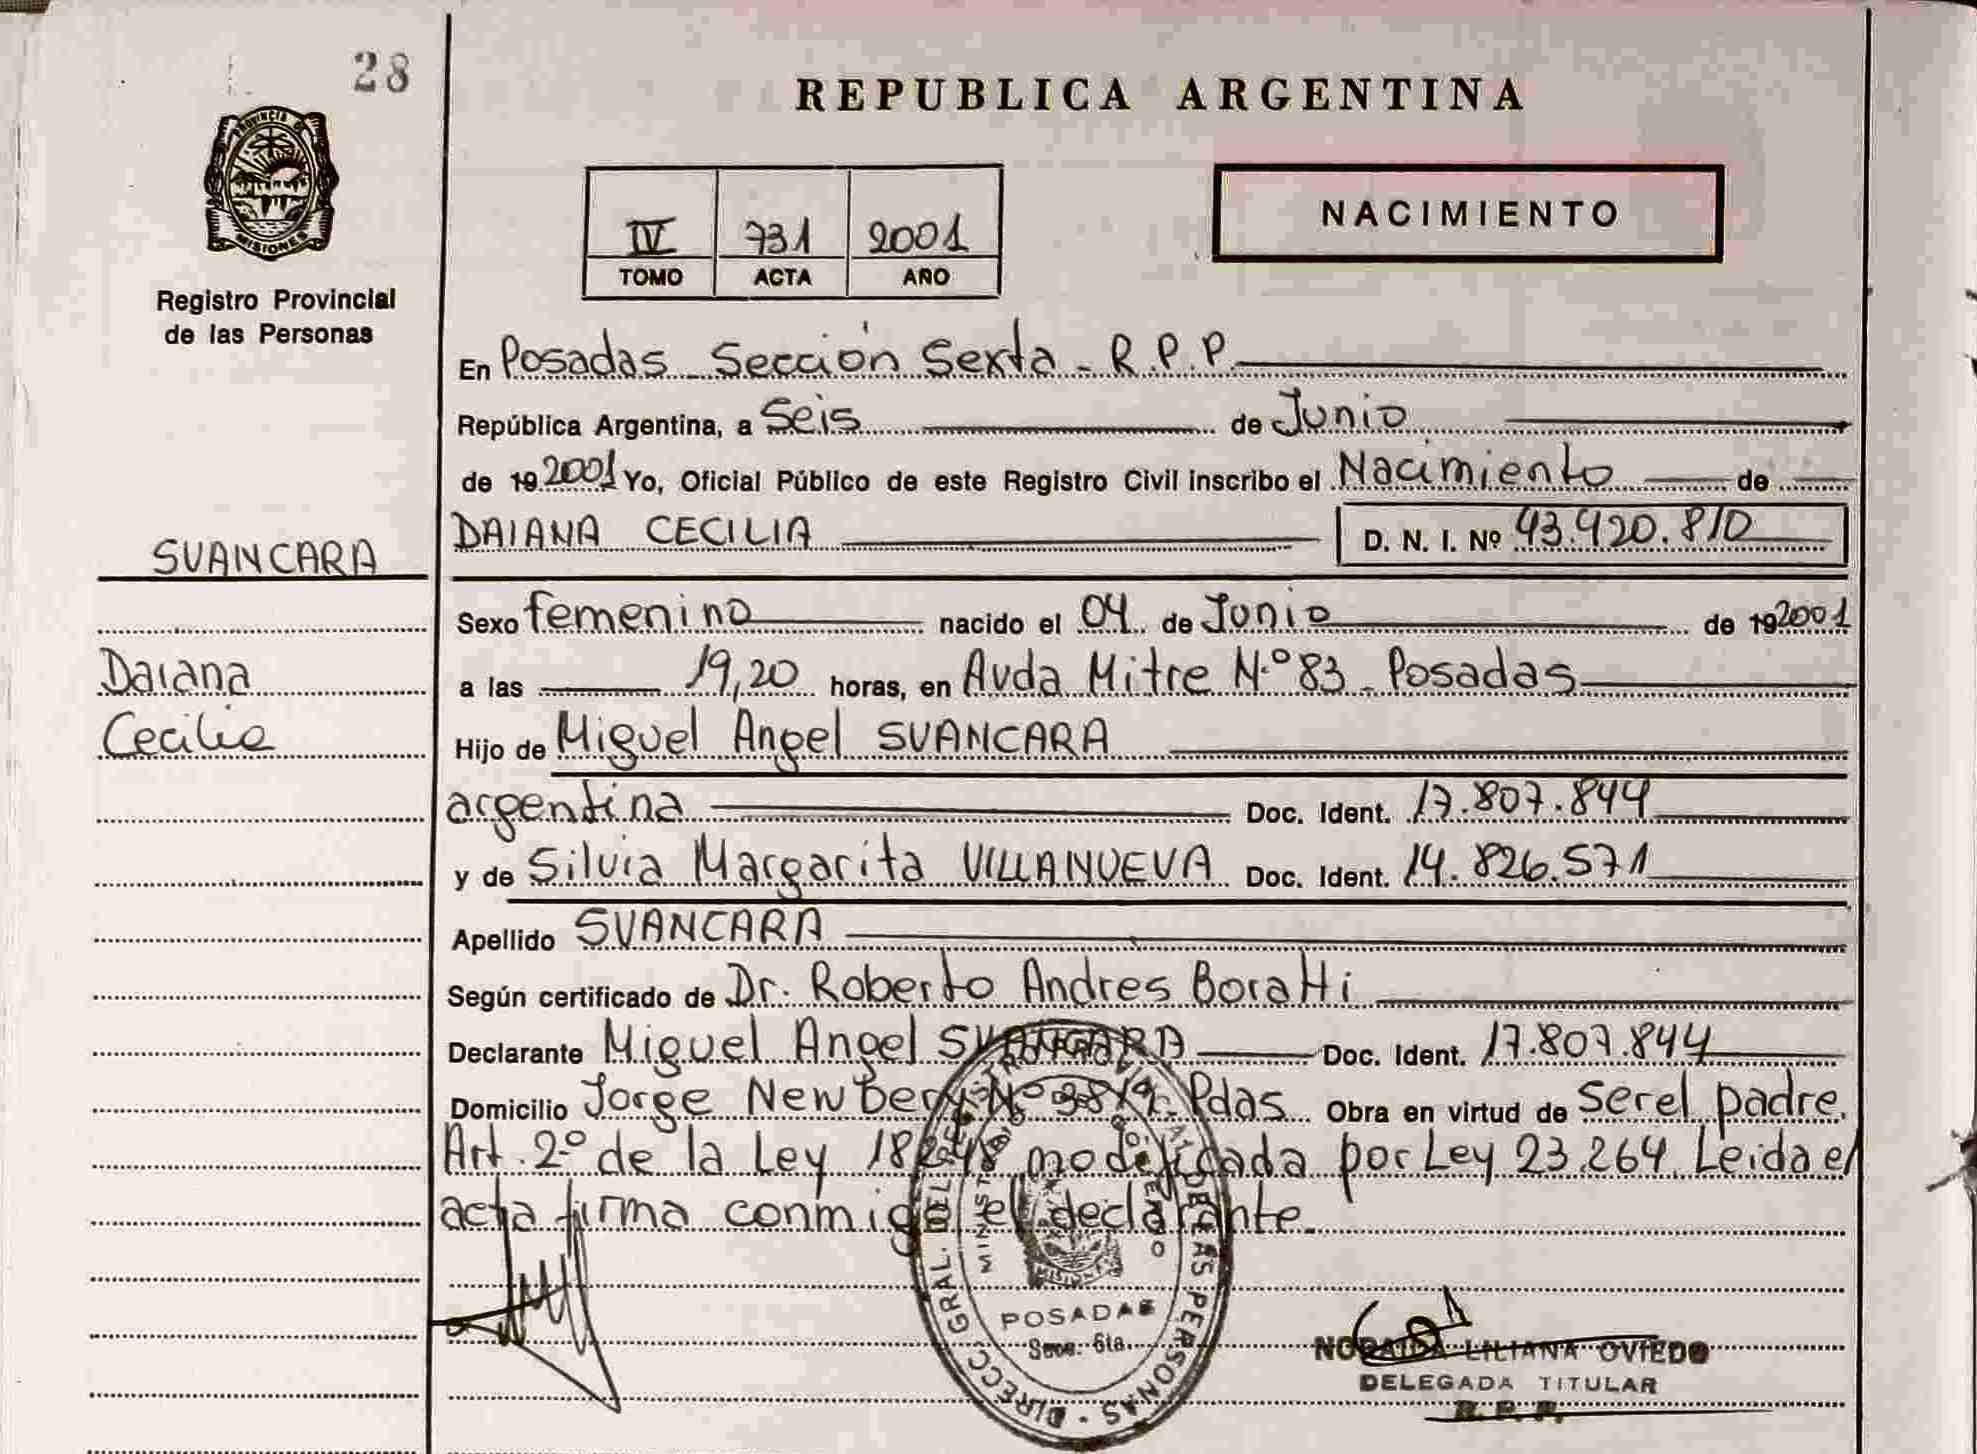 28
REPUBLICA ARGENTINA
PROVINCIA DE
MISIONES
Registro Provincial
de las Personas
IV 731 2001
TOMO ACTA AÑO
NACIMIENTO
En Posadas - Sección Sexta - R.P.P.
República Argentina, a Seis de Junio
de 19 2001 Yo, Oficial Público de este Registro Civil inscribo el Nacimiento de
SVANCARA
DAIANA CECILIA D. N. I. Nº 43.420.810
Sexo femenino nacido el 04 de Junio de 19 2001
Daiana
a las 19,20 horas, en Avda Mitre N.º 83 - Posadas
Cecilia
Hijo de Miguel Angel SVANCARA
argentina Doc. Ident. 17.807.844
y de Silvia Margarita VILLANUEVA Doc. Ident. 14.826.571
Apellido SVANCARA
Según certificado de Dr. Roberto Andres Boratti
Declarante Miguel Angel SVANCARA Doc. Ident. 17.807.844
Domicilio Jorge Newbery Nº Pdas Obra en virtud de ser el padre.
Art. 2º de la Ley 18248 modificada por Ley 23.264. Leida el
acta firma conmigo el declarante.
DIRECC. GRAL. DEL DE LAS PERSONAS
MISIONES
POSADAS
Secc. 6ta.
NORAIDA LILIANA OVIEDO
DELEGADA TITULAR
R. P. P.